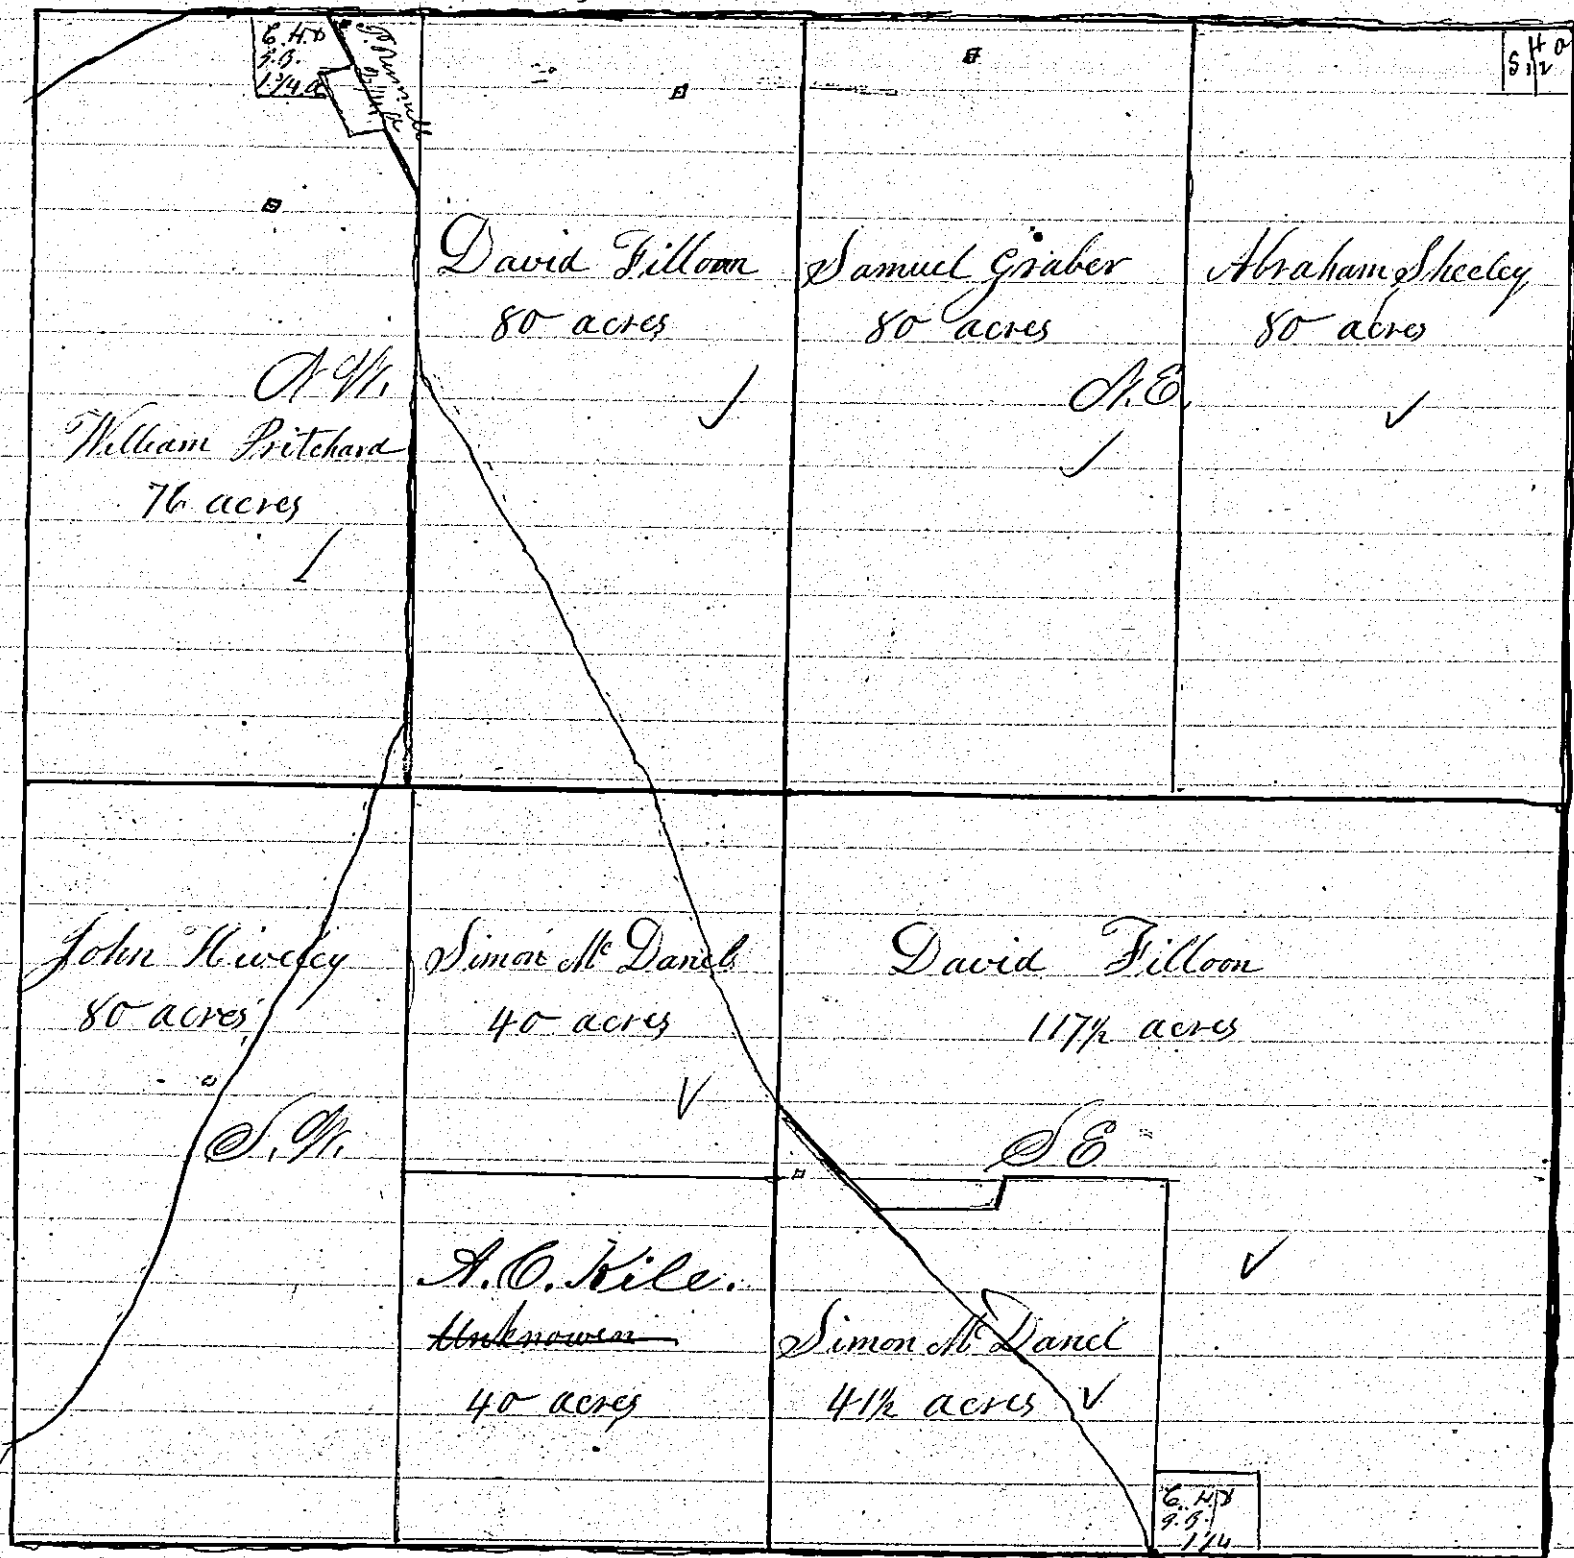 David Filloon
80 acres
Samuel Graber
80 acres
Abraham Sheeley
80 acres
N.W.
N.E.
William Pritchard
76 acres
John Hiveley
80 acres
Simon McDanel
40 acres
David Filloon
117½ acres
S.W.
S E
A.C. Kile.
Unknowen
40 acres
Simon McDanel
41½ acres